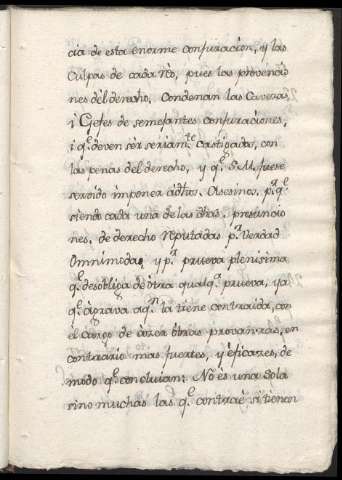 cia de esta enorme conjuracion, q̃ las
Culpas de cada Rèo, pues las prevencio
nes del derecho, Condenan las Caveras,
i Gefes de semejantes conjuraciones,
i q.e deven sèr seriam.te Castigados, con
las penas del derecho, y q.e S. M. fuese
servido imponer à dhos. Asesinos, p.r q.e
siendo cada una de las dhas. presuncio
nes, de derecho Reputadas p.r verdad
Omnimoda, y p.r prueva plenisima
q.e desobliga de òtra qualq.a prueva, ya
q.e àgrava à q.n la tiene contraida, con
el Cargo de àzer òtras provanzas, en
contrario mas fuertes, y èficazes, de
modo q.e concluian: No ès una Sola
sino muchas las q.e contra sì tienen